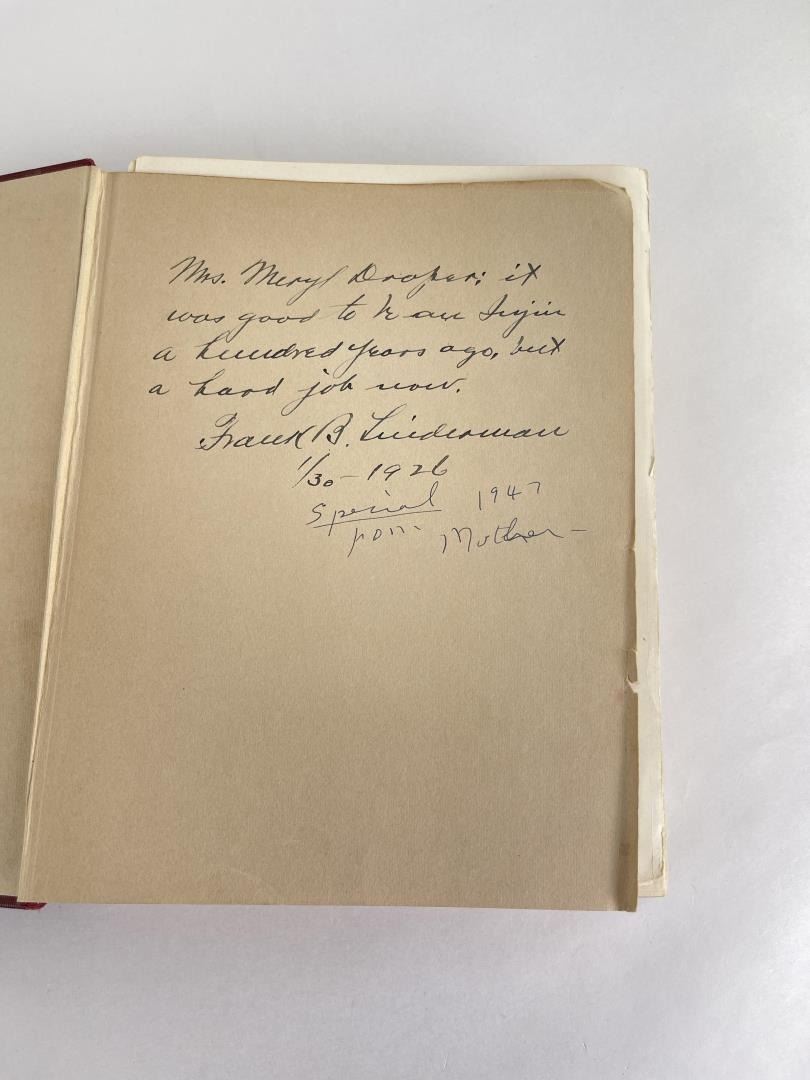 Mrs. Meryl Draper; it
was good to be an Injin
a hundred years ago, but
a hard job now.
Frank B. Linderman
1/30 - 1926
Special 1947
from Mother -